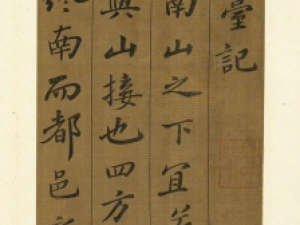 臺記
南山之下宜若
與山接也四方
終南而都邑